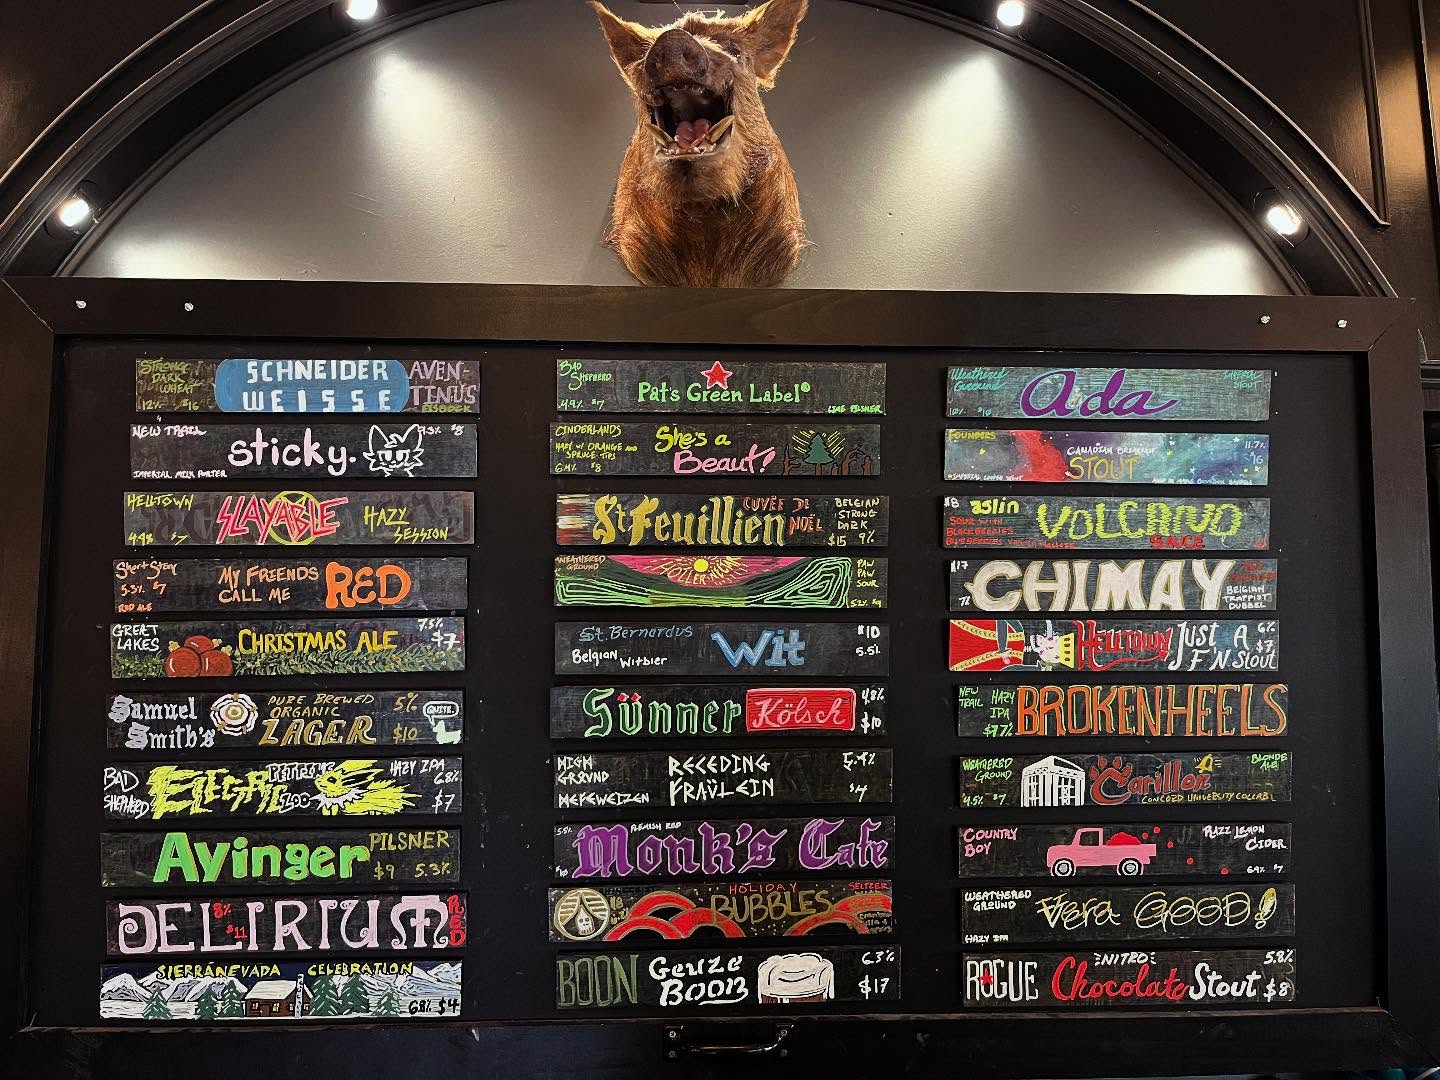 STRONG DARK WHEAT
12% $16
SCHNEIDER WEISSE
AVEN-TINUS
EISBOCK
NEW TRAIL
sticky.
7.3% $8
IMPERIAL MILK PORTER
HELLTOWN
SLAYABLE
HAZY SESSION
4.4% $7
Short Story
5.3% $7
RED ALE
MY FRIENDS CALL ME
RED
GREAT LAKES
CHRISTMAS ALE
7.5% $7
Samuel Smith's
PURE BREWED ORGANIC LAGER
5%
$10
QUITE.
BAD SHEPHERD
ELECTRIC
PETTING ZOO
HAZY IPA
6.8%
$7
Ayinger
PILSNER
$9 5.3%
DELIRIUM
8%
$11
RED
SIERRA NEVADA CELEBRATION
6.8% $4
BAD SHEPHERD
Pat's Green Label®
4.9% $7
LIME PILSNER
CINDERLANDS
HAZY W/ ORANGE AND SPRUCE TIPS
6.4% $8
She's a Beaut!
St Feuillien
CUVÉE DE NOËL
BELGIAN STRONG DARK
$15 9%
WEATHERED GROUND
PAW PAW SOUR
5.2% $9
St. Bernardus
Belgian Witbier
Wit
$10
5.5%
Sünner
Kölsch
4.8%
$10
HIGH GROUND
HEFEWEIZEN
RECEDING FRAÜLEIN
5.4%
$7
5.5%
FLEMISH RED
Monk's Cafe
HOLIDAY BUBBLES
SELTZER
BOON
Geuze Boon
6.3%
$17
Weathered Ground
10% $10
Ada
IMPERIAL STOUT
FOUNDERS
CANADIAN BREAKFAST STOUT
11.7%
$16
$8
aslin
SOUR WITH BLACKBERRIES
BLUEBERRIES
VOLCANO SAUCE
$17
7%
CHIMAY
BELGIAN TRAPPIST DUBBEL
HELLTOWN
JUST A F'N STOUT
6%
$7
NEW TRAIL
HAZY IPA
$7 7%
BROKEN HEELS
WEATHERED GROUND
4.5% $7
Carillon
BLONDE ALE
CONCORD UNIVERSITY COLLAB
COUNTRY BOY
RAZZ LEMON CIDER
6.9% $7
WEATHERED GROUND
HAZY IPA
Vera GOOD!
ROGUE
NITRO
Chocolate Stout
5.8%
$8